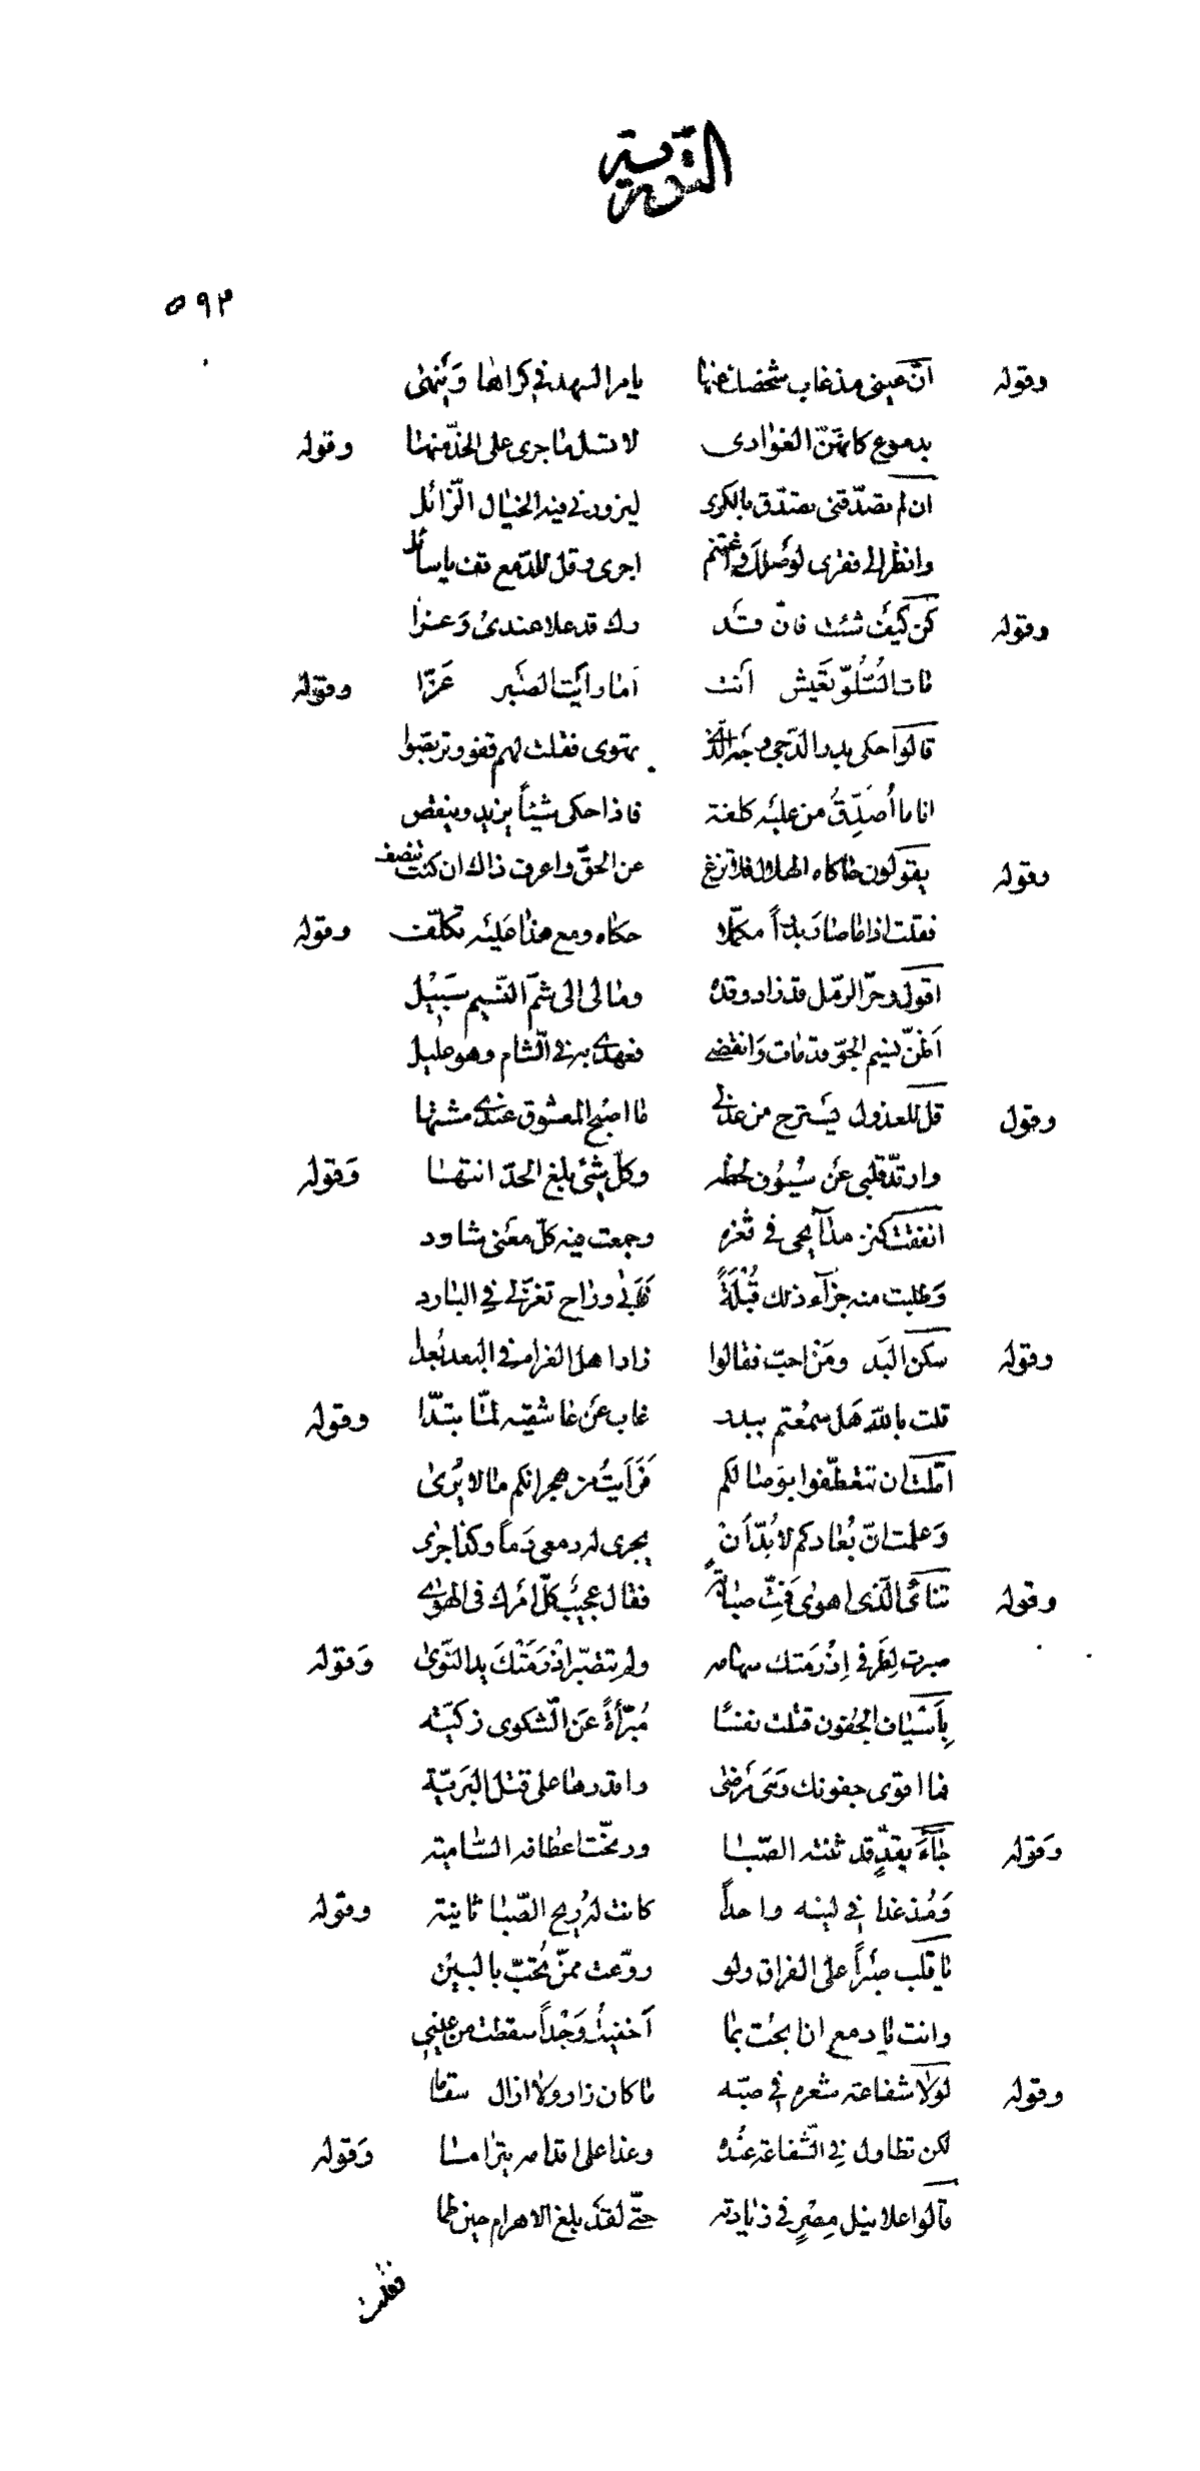 التورية
٥٩٣
وقوله انّ عينى مذ غاب شخصك عنها يامر السهد فى كراها وَيَنهى
بدموع كانّهنّ الغوادى لا تسل ما جرى على الخدّ منها وقوله
ان لم تصدّقنى تصدّق بالكرى ليزورنى فيه الخيال الزّائل
وانظر الى فقرى لوصلك واغتنم اجرى وقل للدّمع قف يا سائل
وقوله كن كَيفَ شئت فانّ قَد رك قد علا عندى وَعزا
مات السُّلُوّ تعيش أنت أما رأيت الصّبر عَزّا وقوله
قالوا حكى بدر الدّجى وجه الّذى تهوى فقلت لهم قفو وتربّصوا
انا ما أُصَدِّقُ من عليه كلفة فاذا حكى شيئاً يزيد وينقص
وقوله يقولون حاكاه الهلال فلا تزغ عن الحقّ واعرف ذاك ان كنت تنصف
فقلت اذا ما صار بدراً مكمّلا حكاه ومع هذا عليه تكلّف وقوله
اقول وحرّ الرمل قد زاد وقده ومالى الى شمّ النّسيم سَبيْل
اَظنّ نسيم الجوّ قد مات وَانقضى فعهدى به فى الشام وهو عليل
وقول قل للعذول يسترح من عذلى ما اصبح المعشوق عندى مشتها
وارتدّ قلبى عن سُيُوف لحظه وكلّ شئ بلغ الحدّ انتهى وَقوله
انفقت كنز مدآيحى فى ثغره وجمعت فيه كلّ معنى شارد
وَطلبت منه جزآء ذلك قُبْلَةً فَابى وراح تغزّلى فى البارد
وقوله سكن البَد ومَن احبّ فقالوا زاد اهل الغرام فى البعد بُعدا
قلت بالله هَل سمعْتم ببدر غاب عن عاشقيه لمّا تبدّا وقوله
امّلت ان تتعطّفوا بوَصالكم فَرَاَيتُ من هجرانكم ما لا يُرى
وَعلمت انّ بُعادكم لا بُدّ أنْ يجرى له دمعى دَماً وكذا جرى
وقوله تنائى الّذى اهوى فمتّ صبابة فقال عجيبٌ كلّ امرك فى الهوى
صبرت لطرفى اِذْ رمَتك سهامه ولم تتصبّر اذ رَمَتْكَ يد النّوى وَقوله
بِأَسياف الجُفون قتلت نفسًا مُبَرَّأَةً عَن الشكوى زكيّه
فما اقوى جفونك وَهى مَرضى واقدرها على قتل البَريّة
وَقوله جآءَ بقدٍّ قد ثنته الصّبا ورنّحت اعطافه السّامية
وَمُذ غدا فى لينه واحداً كانت له ريح الصّبا ثانية وقوله
يا قلب صَبراً على الفراق ولو روّعت ممّن تُحبّ بالبين
وانت يا دمع ان بحت بما أخفيتُ وَجْداً سقطت من عينى
وقوله لولا شفاعة شعره فى صبّه ما كان زار ولا ازال سقاما
لكن تطاول فى الشّفاعة عنْده وغدا على اقدامه يترامى وَقوله
قالوا علا نيل مِصْرٍ فى زيادته حتّى لقد بلغ الاهرام حين طما
فقلت